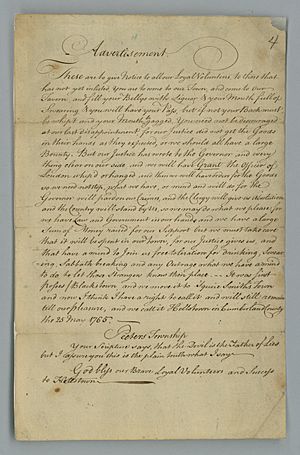 4
Advertisement
These are to give Notice to all our Loyal Volunteers to those that
has not yet inlisted, You are to come to our Town, and come to our
Tavern and fill your Bellys with Liquor & your Mouth full of
Swearing & you will have your Pass, but if not your Back must
be whipt and your Mouth Gagged, You need not be discouraged
at our last disappointment for our Justice did not get the Goods
in their hands as they expected, or we should all have a large
Bounty. But our Justice has wrote to the Governor, and every
thing clear on our side, and we will have Grant the Officer of
Loudon whip'd or hanged, and then we will have Orders for the Goods
so we need not stop, what we have a mind and will do for the
Governor will pardon our Crimes, and the Clergy will give us Absolution
and the Country will stand by Us, so we may do what we please, for
we have Law and Government in our hands and we have a large
Sum of Money raised for our Support but we must take care
that it will be spent in our Town, for our Justice gives us, and
that have a mind to Join us free toleration for Drinking, Swear-
ing, Sabbath breaking and any Outrage what we have a mind
to do to let those Strangers know their place. It was first
Possess Blackstown, and we move it to Squire Smiths Town
and now I think I have a right to call it and will still remain
till our pleasure, and we call it Hellstown in Cumberland County
the 25 May 1765.
Peters Township
Your Scripture says, that the Devil is the Father of Lies
but I assure you this is the plain truth what I say
God bless our Brave Loyal Volunteers and Success
to Hellstown